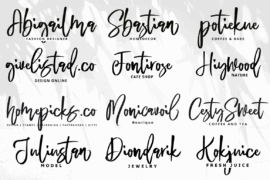 AbigailMa
FASHION DESIGNER
Sbastian
potiekne
COFFEE & BAKE
givelistad.co
DESIGN ONLINE
Fontirose
CAKE SHOP
Highwood
NATURE
homepicks.co
Monicavoil
Boutique
CestyShweet
COFFEE AND TEA
Juliustan
MODEL
Diondarik
JEWELRY
Kokjuice
FRESH JUICE